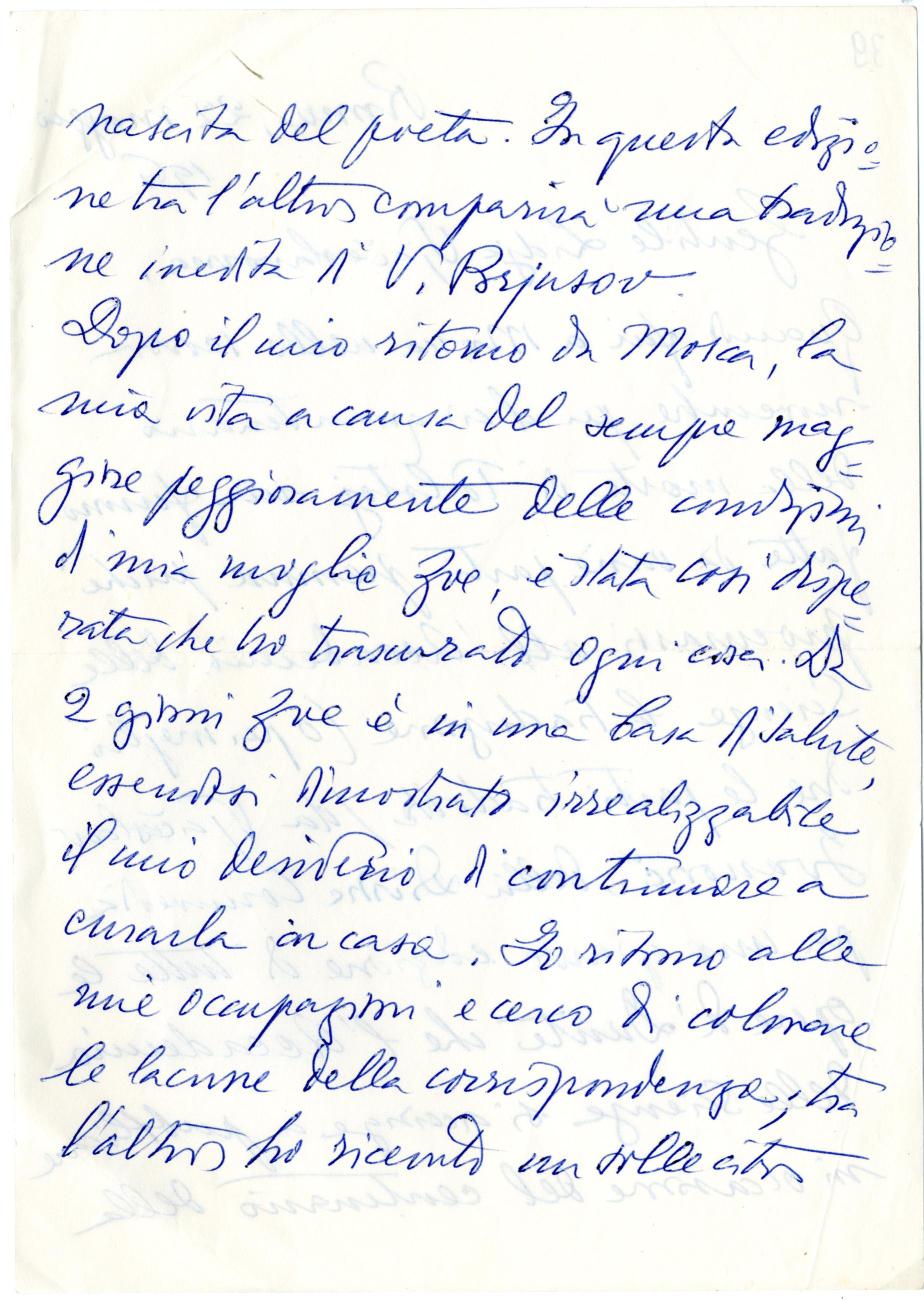 nascita del poeta. In questa edizio=
ne tra l'altro comparirà una traduzio=
ne inedita di V. Brjusov.
Dopo il mio ritorno da Mosca, la
mia vita a causa del sempre mag=
giore peggioramente delle condizioni
di mia moglie Zoe, è stata così dispe=
rata che ho trascurato ogni cosa. Da
2 giorni Zoe è in una Casa di Salute,
essendosi dimostrato irrealizzabile
il mio desiderio di continuare a
curarla in casa. Io ritorno alle
mie occupazioni e cerco di colmare
le lacune della corrispondenza; tra
l'altro ho ricevuto un sollecito